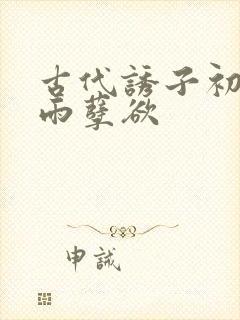 古代誘子初
雨孽欲
申誠